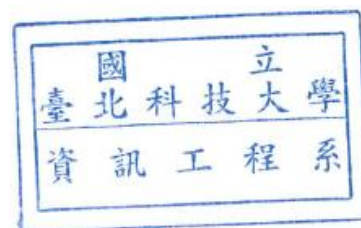 國立
臺北科技大學
資訊工程系